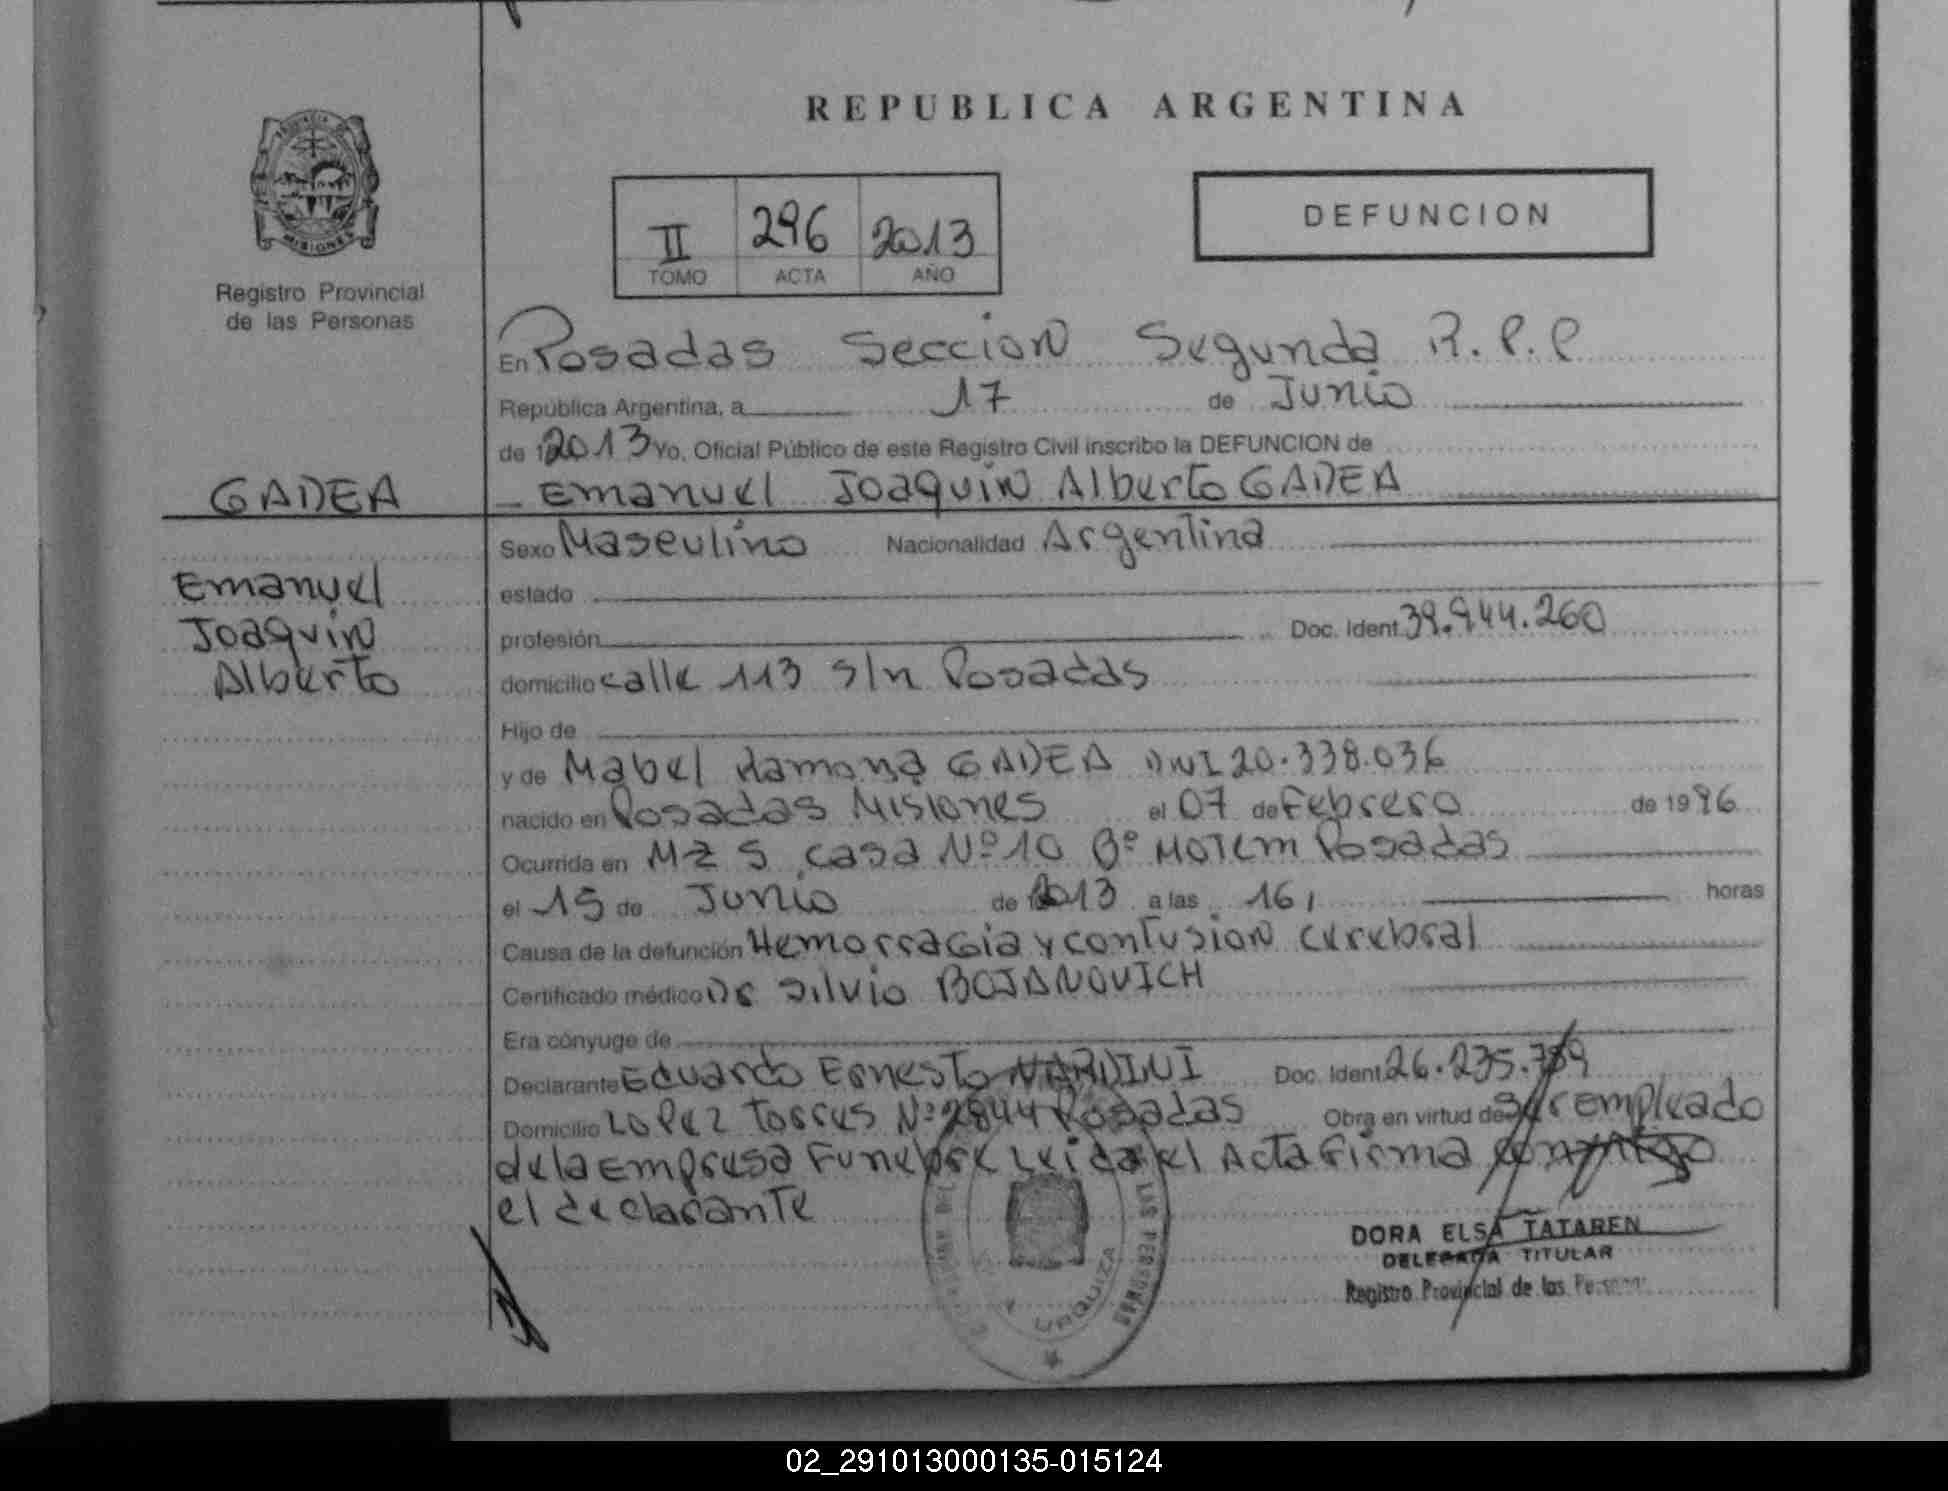 REPUBLICA ARGENTINA
PROVINCIA DE
MISIONES
Registro Provincial
de las Personas
II 296 2013
TOMO ACTA AÑO
DEFUNCION
En Posadas Seccion Segunda R.P.P
República Argentina, a 17 de Junio
de 2013 Yo, Oficial Público de este Registro Civil inscribo la DEFUNCION de
GADEA
Emanuel Joaquin Alberto GADEA
Emanuel
Joaquin
Alberto
Sexo Masculino Nacionalidad Argentina
estado
profesión Doc. Ident. 39.944.260
domicilio calle 113 s/n Posadas
Hijo de
y de Mabel Ramona GADEA DNI 20.338.036
nacido en Posadas Misiones el 07 de Febrero de 1996
Ocurrida en Mz 5 casa Nº 10 Bº Posadas
el 15 de Junio de 2013 a las 16, horas
Causa de la defunción Hemorragia y contusion cerebral
Certificado médico Dr Silvio BOJANOVICH
Era cónyuge de
Declarante Eduardo Ernesto NARDINI Doc. Ident. 26.235.789
Domicilio Lopez Torres Nº 2844 Posadas Obra en virtud de ser empleado
de la Empresa Funebre Leida el Acta Firma conmigo
el declarante
LAS PERSONAS
URQUIZA
DORA ELSA TATAREN
DELEGADA TITULAR
Registro Provincial de las Personas
02_291013000135-015124